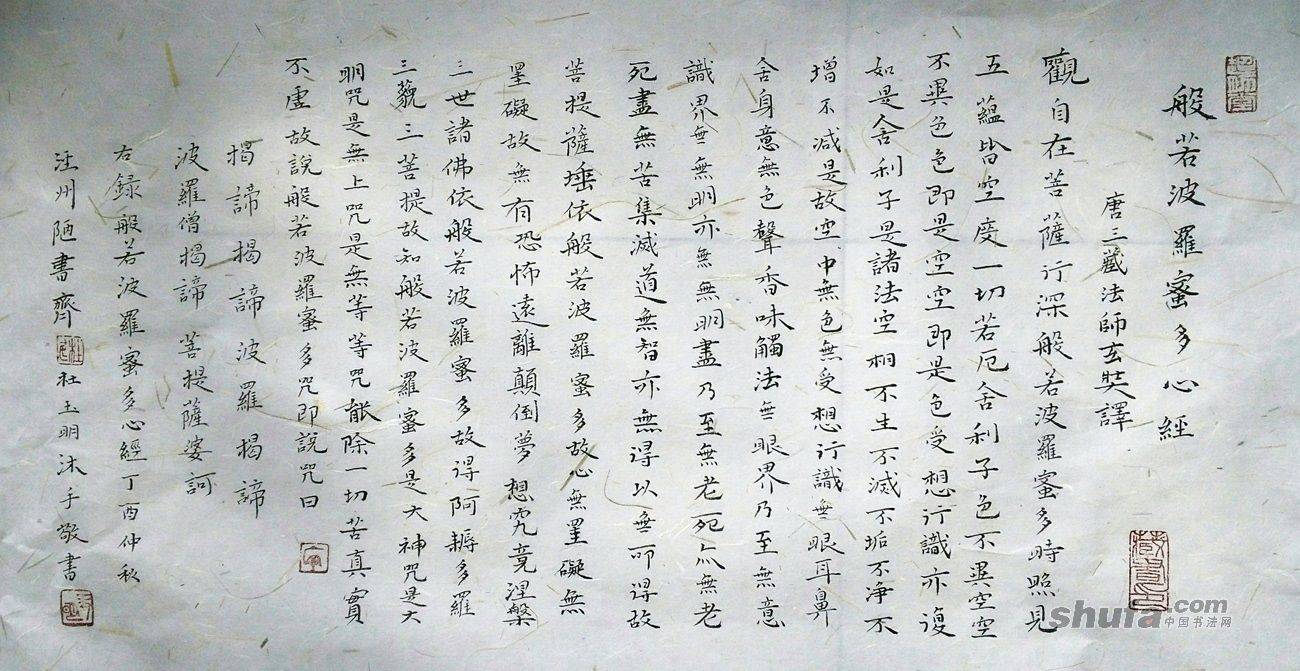 般若波羅蜜多心經
唐三藏法師玄奘譯
觀自在菩薩行深般若波羅蜜多時照見
五蘊皆空度一切苦厄舍利子色不異空空
不異色色即是空空即是色受想行識亦復
如是舍利子是諸法空相不生不滅不垢不淨不
增不减是故空中無色無受想行識無眼耳鼻
舌身意無色聲香味觸法無眼界乃至無意
識界無無明亦無無明盡乃至無老死亦無老
死盡無苦集滅道無智亦無得以無所得故
菩提薩埵依般若波羅蜜多故心無罣礙無
罣礙故無有恐怖遠離顛倒夢想究竟涅槃
三世諸佛依般若波羅蜜多故得阿耨多羅
三藐三菩提故知般若波羅蜜多是大神咒是大
明咒是無上咒是無等等咒能除一切苦真實
不虛故說般若波羅蜜多咒即說咒曰
揭諦揭諦波羅揭諦
波羅僧揭諦菩提薩婆訶
右録般若波羅蜜多心經丁酉仲秋
州陋書齋杜玉明沐手敬書
shufa.com
中国书法网